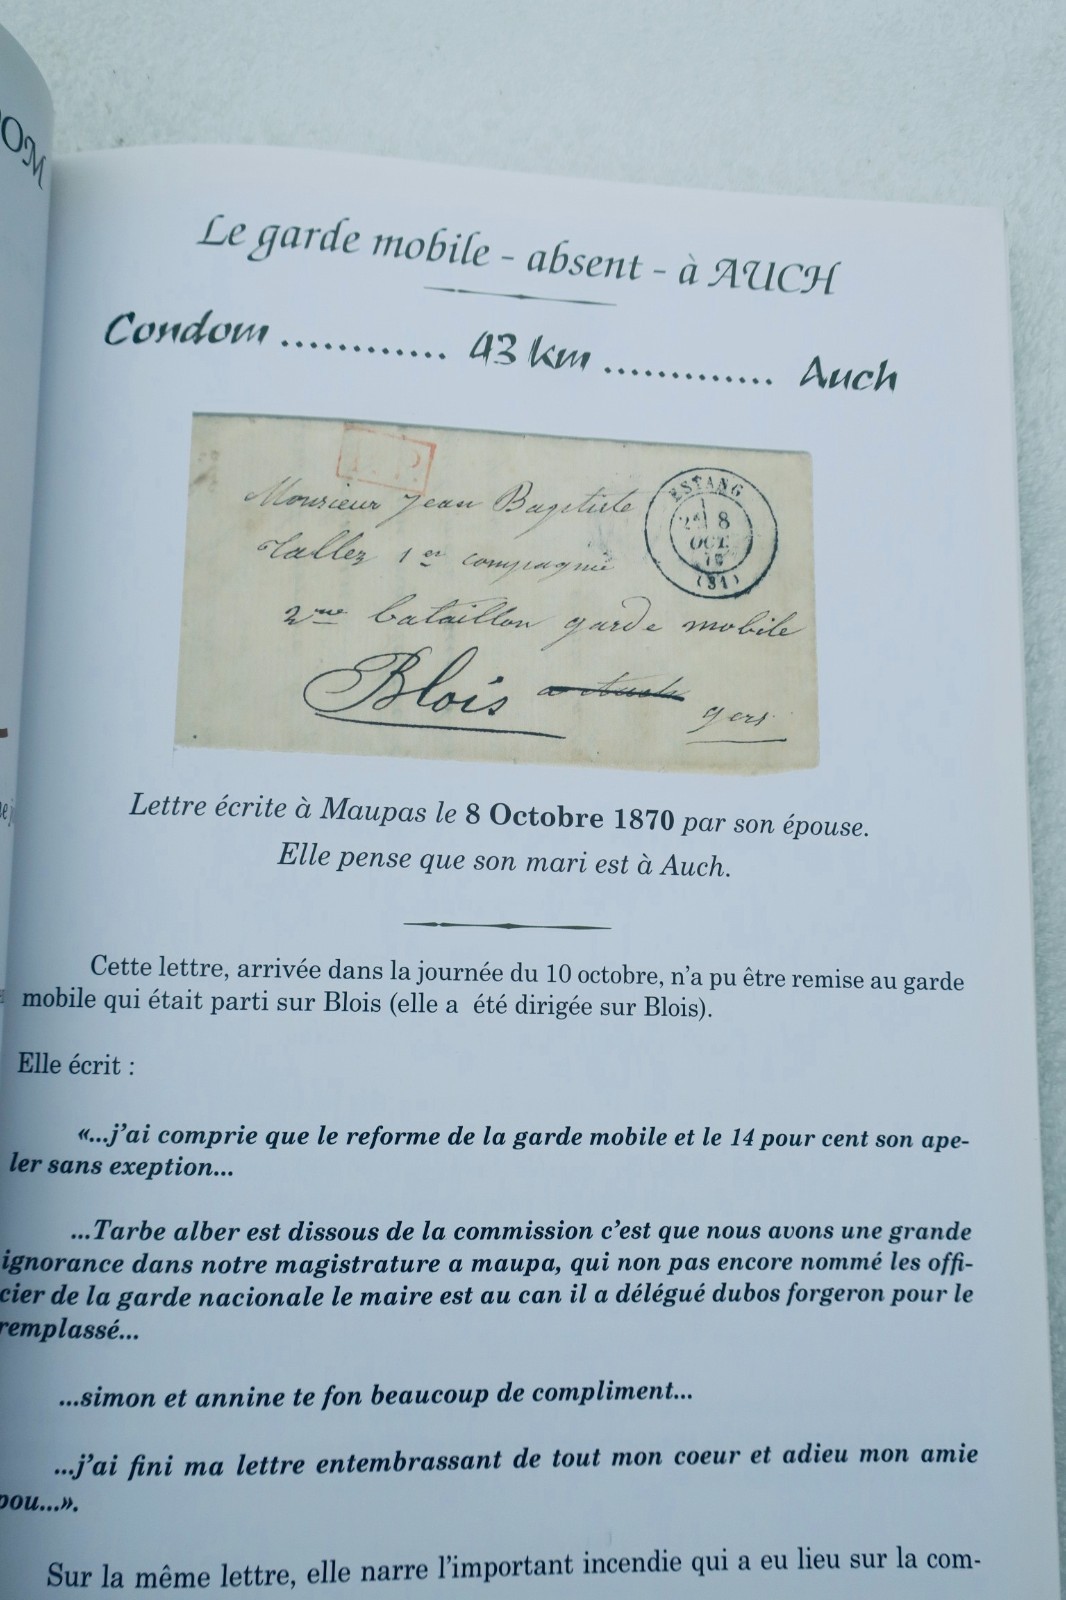 OM
Le garde mobile - absent - à AUCH
Condom ............ 43 km ............. Auch
P.P.
ESTANG
8
OCT.
70
(31)
Monsieur Jean Baptiste
Tallez 1er compagnie
2me bataillon garde mobile
Blois a Auch gers
Lettre écrite à Maupas le 8 Octobre 1870 par son épouse.
Elle pense que son mari est à Auch.
Cette lettre, arrivée dans la journée du 10 octobre, n'a pu être remise au garde
mobile qui était parti sur Blois (elle a été dirigée sur Blois).
Elle écrit :
«...j'ai comprie que le reforme de la garde mobile et le 14 pour cent son ape-
ler sans exeption...
...Tarbe alber est dissous de la commission c'est que nous avons une grande
ignorance dans notre magistrature a maupa, qui non pas encore nommé les offi-
cier de la garde nacionale le maire est au can il a délégué dubos forgeron pour le
remplassé...
...simon et annine te fon beaucoup de compliment...
...j'ai fini ma lettre entembrassant de tout mon coeur et adieu mon amie
pou...».
Sur la même lettre, elle narre l'important incendie qui a eu lieu sur la com-